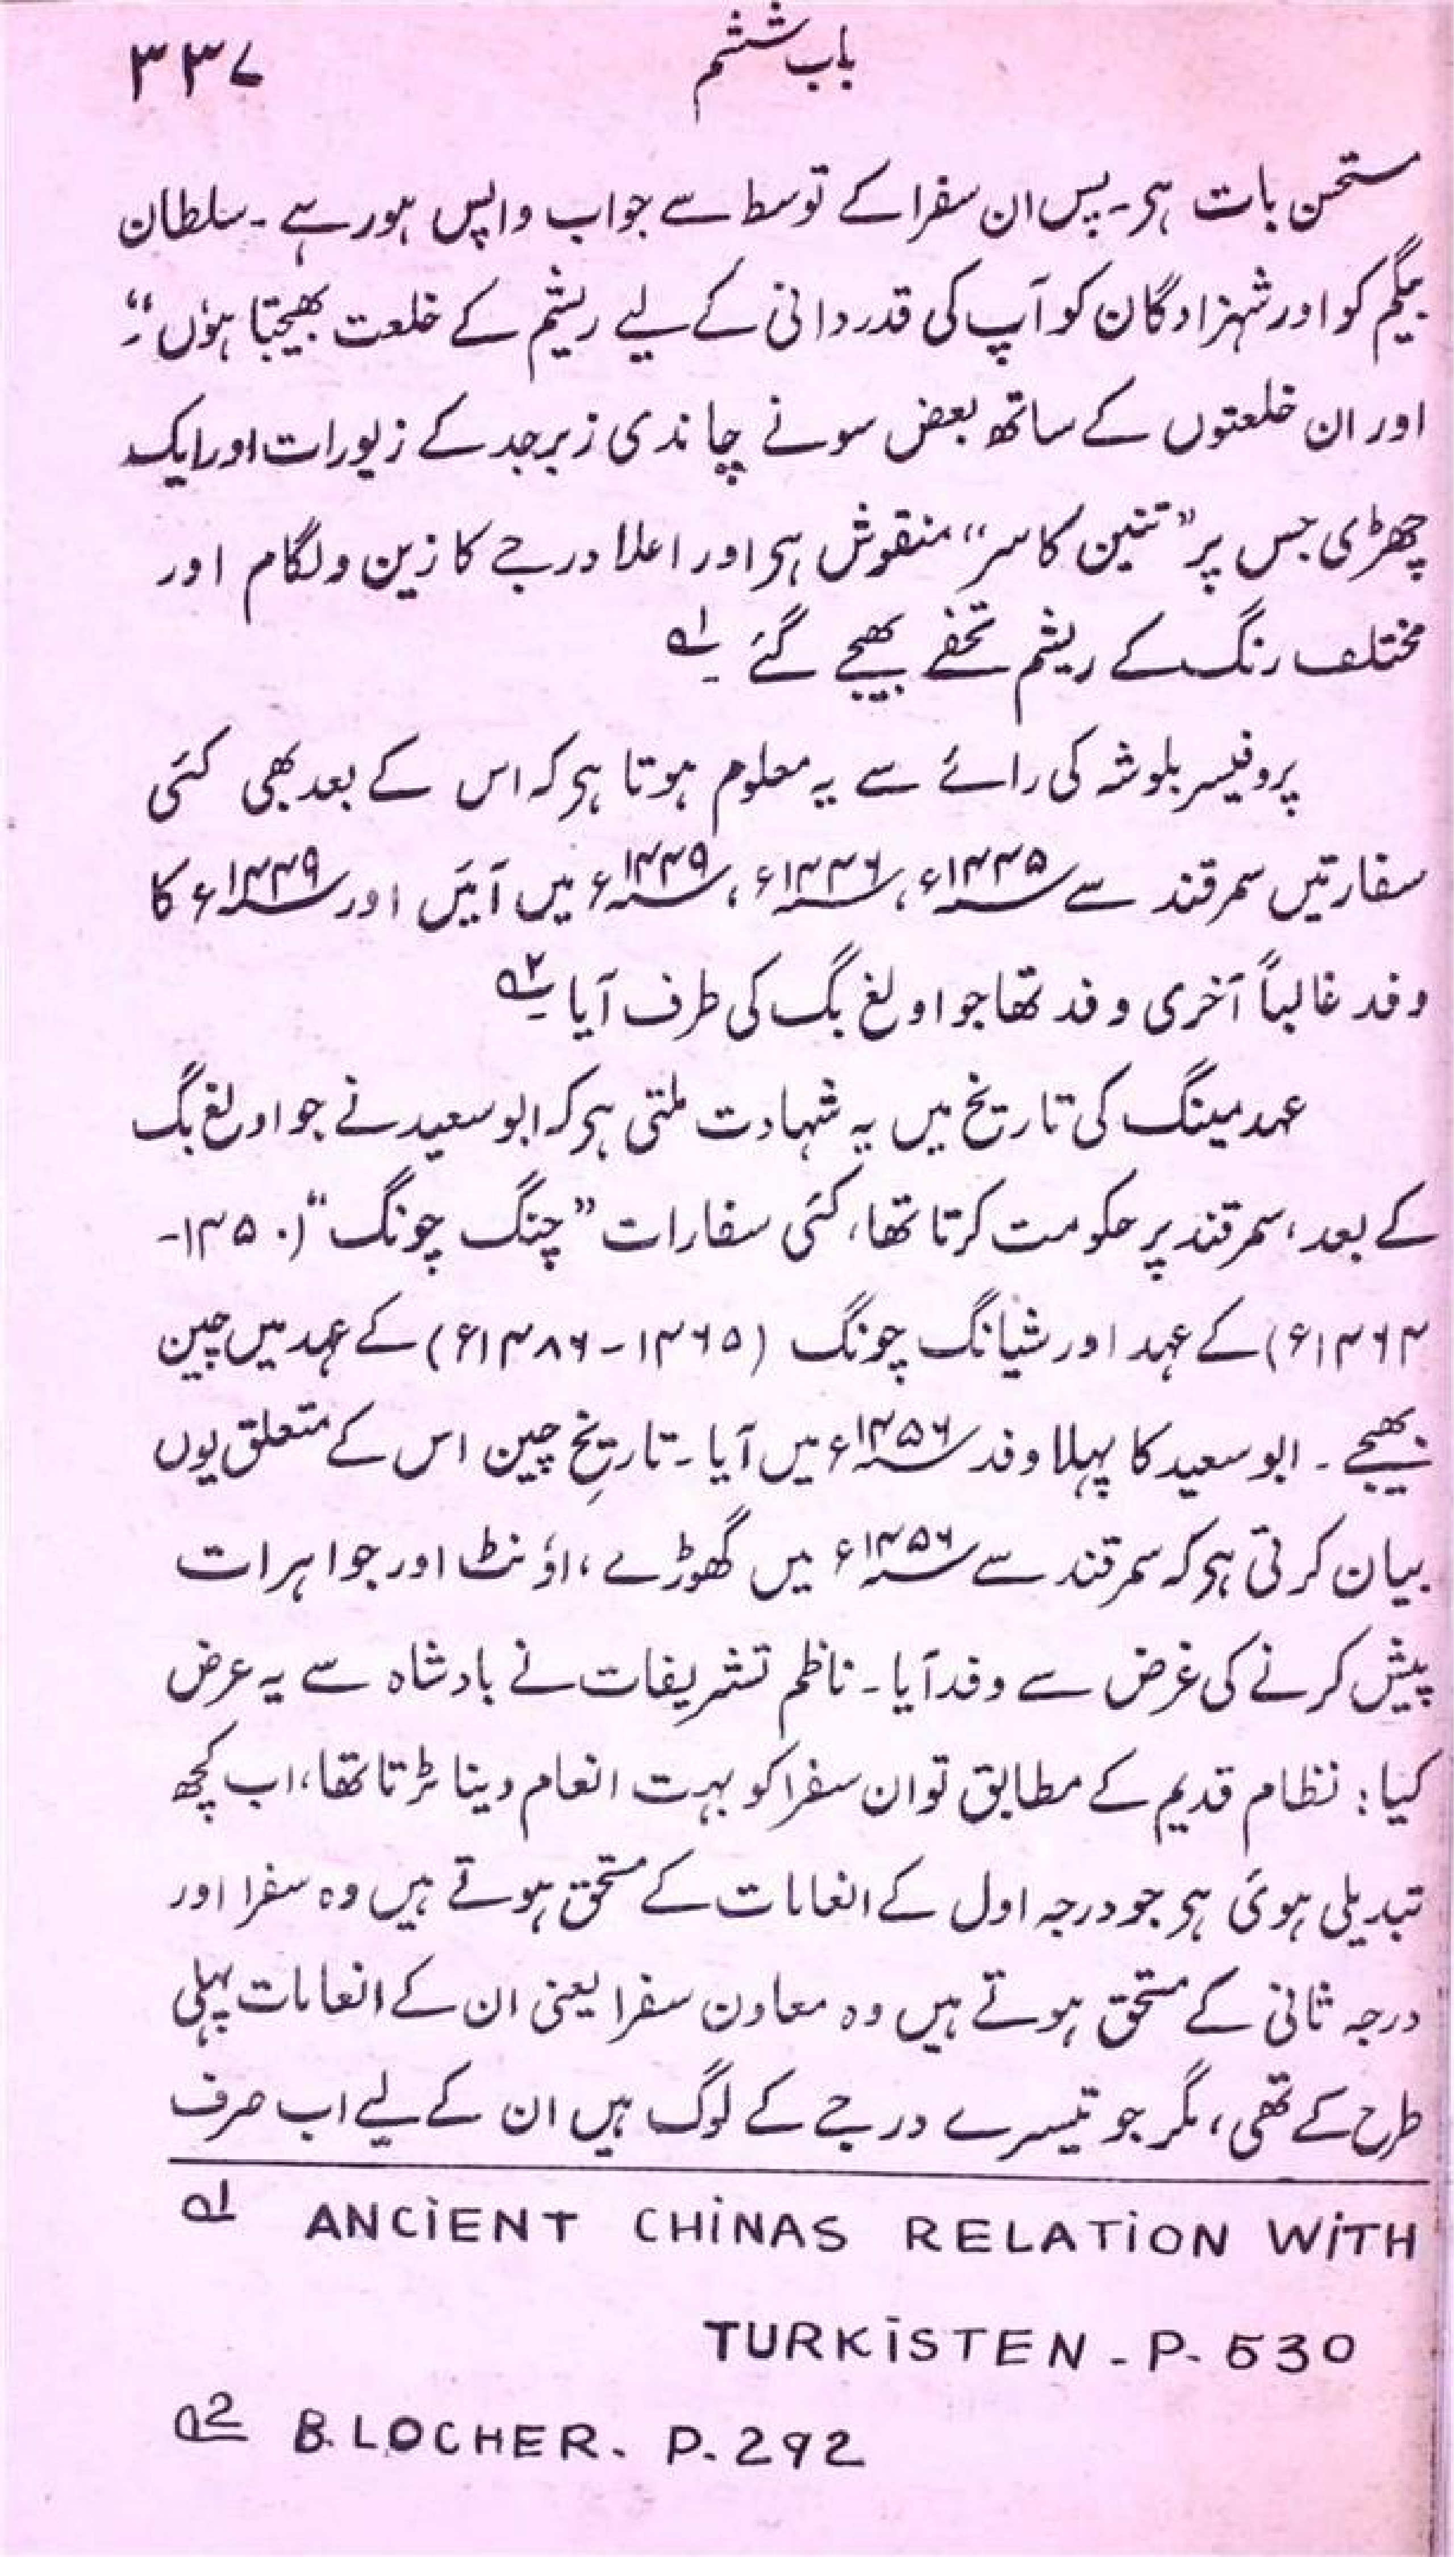 باب ششم
۳۳۷
مستحسن بات ہی۔ پس ان سفرا کے توسط سے جواب واپس ہو رہے۔ سلطان
بیگم کو اور شہزادگان کو آپ کی قدردانی کے لیے ریشم کے خلعت بھیجتا ہوٗں“۔
اور ان خلعتوں کے ساتھ بعض سونے چاندی زبرجد کے زیورات اور ایک
چھڑی جس پر ”تنین کا سر“ منقوش ہی اور اعلا درجے کا زین و لگام اور
مختلف رنگ کے ریشم تحفے بھیجے گئے۔ ؎۱
پروفیسر بلوشہ کی رائے سے یہ معلوم ہوتا ہی کہ اس کے بعد بھی کئی
سفارتیں سمرقند سے ۱۴۴۵ء، ۱۴۴۶ء، ۱۴۴۹ء میں آئیں اور ۱۴۴۹ء کا
وفد غالباً آخری وفد تھا جو اولغ بگ کی طرف آیا۔ ؎۲
عہد مینگ کی تاریخ میں یہ شہادت ملتی ہی کہ ابوسعید نے جو اولغ بگ
کے بعد، سمرقند پر حکومت کرتا تھا، کئی سفارات ”چنگ چونگ“ (۱۴۵۰-
۱۴۶۴ء) کے عہد اور شیانگ چونگ (۱۴۶۵-۱۴۸۶ء) کے عہد میں چین
بھیجے۔ ابوسعید کا پہلا وفد ۱۴۵۶ء میں آیا۔ تاریخِ چین اس کے متعلق یوں
بیان کرتی ہی کہ سمرقند سے ۱۴۵۶ء میں گھوڑے، اوٗنٹ اور جواہرات
پیش کرنے کی غرض سے وفد آیا۔ ناظم تشریفات نے بادشاہ سے یہ عرض
کیا: نظام قدیم کے مطابق تو ان سفرا کو بہت انعام دینا پڑتا تھا، اب کچھ
تبدیلی ہوئی ہی جو درجہ اول کے انعامات کے مستحق ہوتے ہیں وہ سفرا اور
درجہ ثانی کے مستحق ہوتے ہیں وہ معاون سفرا یعنی ان کے انعامات پہلی
طرح کے تھی، مگر جو تیسرے درجے کے لوگ ہیں ان کے لیے اب صرف
؎1 ANCIENT CHINAS RELATION WITH
TURKISTEN - P- 530
؎2 B.LOCHER. P. 292